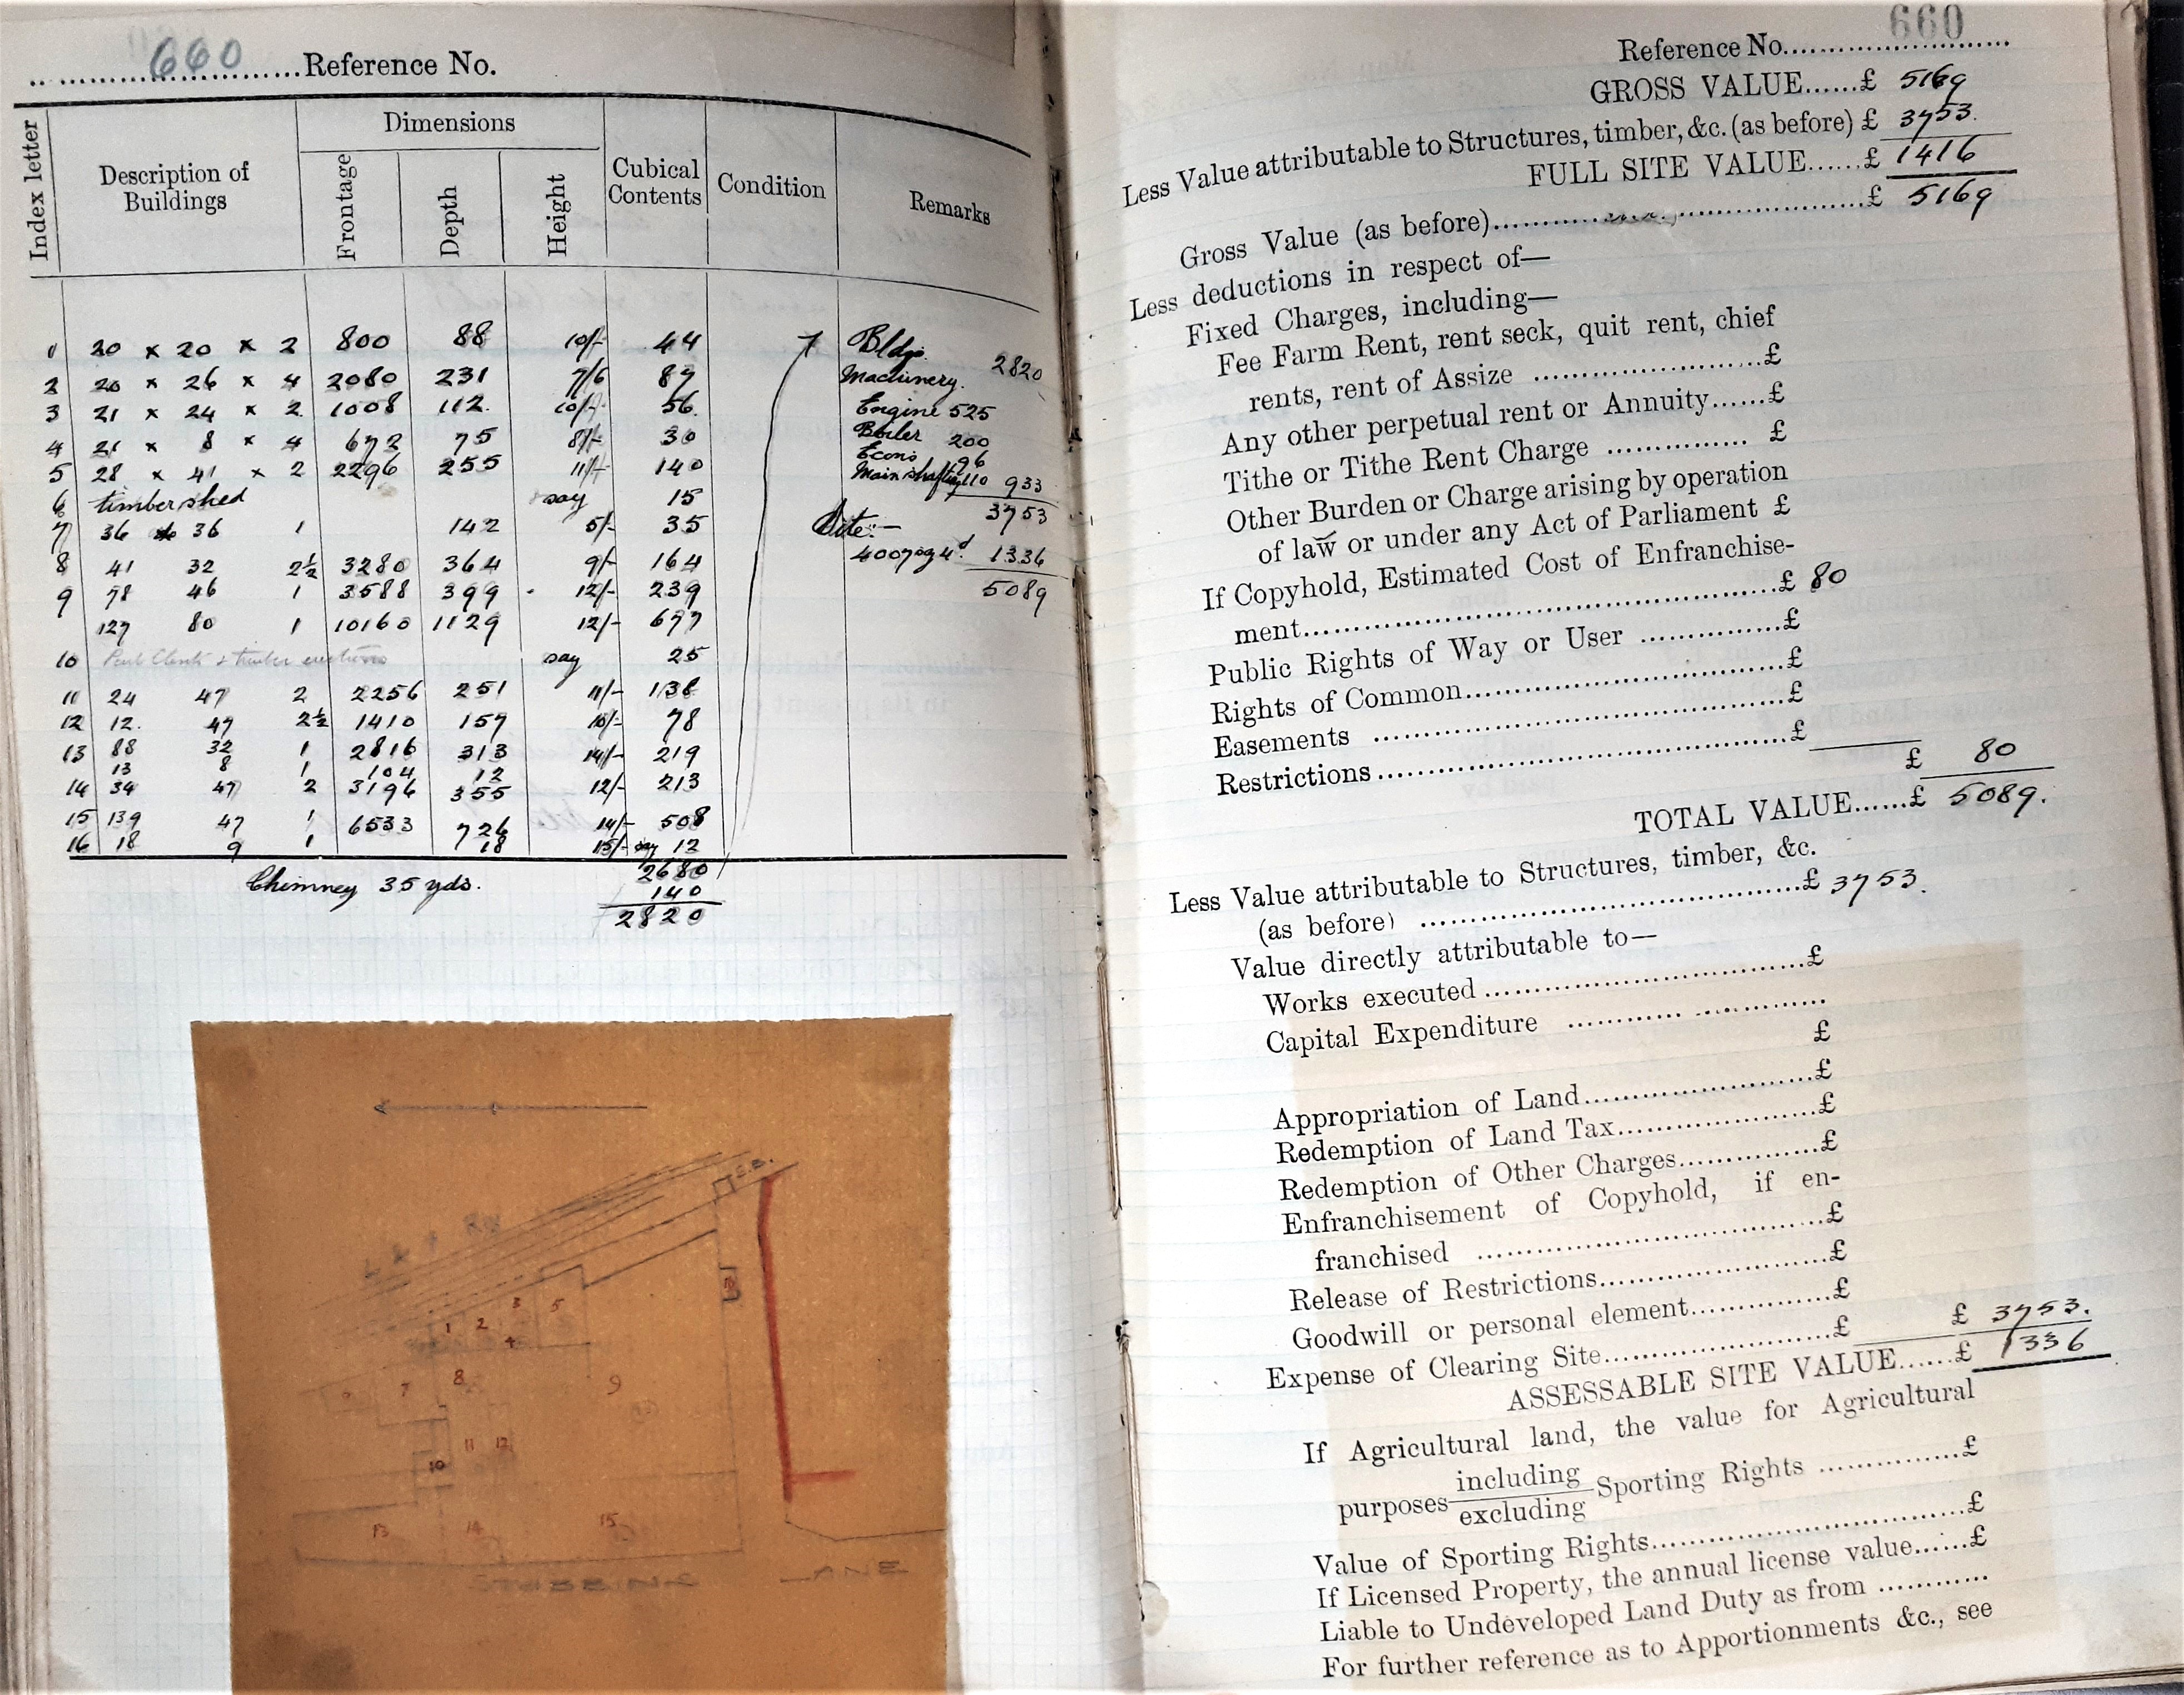 660 Reference No.
Index letter
Description of Buildings
Dimensions
Frontage
Depth
Height
Cubical Contents
Condition
Remarks
1 20 x 20 x 2 800 88 10/- 44
2 20 x 26 x 4 2080 231 7/6 87
3 21 x 24 x 2 1008 112. 10/- 56.
4 21 x 8 x 4 672 75 8/- 30
5 28 x 41 x 2 2296 255 11/- 140
6 timber shed say 15
7 36 36 1 142 5/- 35
8 41 32 2½ 3280 364 9/- 164
9 78 46 1 3588 399 12/- 239
127 80 1 10160 1129 12/- 677
10 & timber erections say 25
11 24 47 2 2256 251 11/- 138
12 12. 47 2½ 1410 157 10/- 78
13 88 32 1 2816 313 14/- 219
13 8 1 104 12
14 34 47 2 3196 355 12/- 213
15 139 47 1 6533 726 14/- 508
16 18 9 1 18 15/- say 12
2680
Chimney 35 yds. 140
2820
Bldgs. 2820
Machinery.
Engine 525
Boiler 200
Econo 96
Main shafting 110 933
3753
Site:-
4007 @ 4d 1336
5089
S.B.
L & Y Ry
16
3 5
1 2
4
6 7 8 9
11 12
10
13 14 15
STUBBING LANE
Reference No. 660
GROSS VALUE......£ 5169
Less Value attributable to Structures, timber, &c. (as before) £ 3753.
FULL SITE VALUE......£ 1416
Gross Value (as before)......£ 5169
Less deductions in respect of—
Fixed Charges, including—
Fee Farm Rent, rent seck, quit rent, chief
rents, rent of Assize ......£
Any other perpetual rent or Annuity......£
Tithe or Tithe Rent Charge ...... £
Other Burden or Charge arising by operation
of law or under any Act of Parliament £
If Copyhold, Estimated Cost of Enfranchise-
ment......£ 80
Public Rights of Way or User ......£
Rights of Common......£
Easements ......£
Restrictions......£
£ 80
TOTAL VALUE......£ 5089.
Less Value attributable to Structures, timber, &c.
(as before) ......£ 3753.
Value directly attributable to—
Works executed ......£
Capital Expenditure ......
£
Appropriation of Land......£
Redemption of Land Tax......£
Redemption of Other Charges......£
Enfranchisement of Copyhold, if en-
franchised ......£
Release of Restrictions......£
Goodwill or personal element......£
Expense of Clearing Site......£
£ 3753.
ASSESSABLE SITE VALUE......£ 1336
If Agricultural land, the value for Agricultural
purposes including Sporting Rights ......£
excluding
Value of Sporting Rights......£
If Licensed Property, the annual license value......£
Liable to Undeveloped Land Duty as from ......
For further reference as to Apportionments &c., see